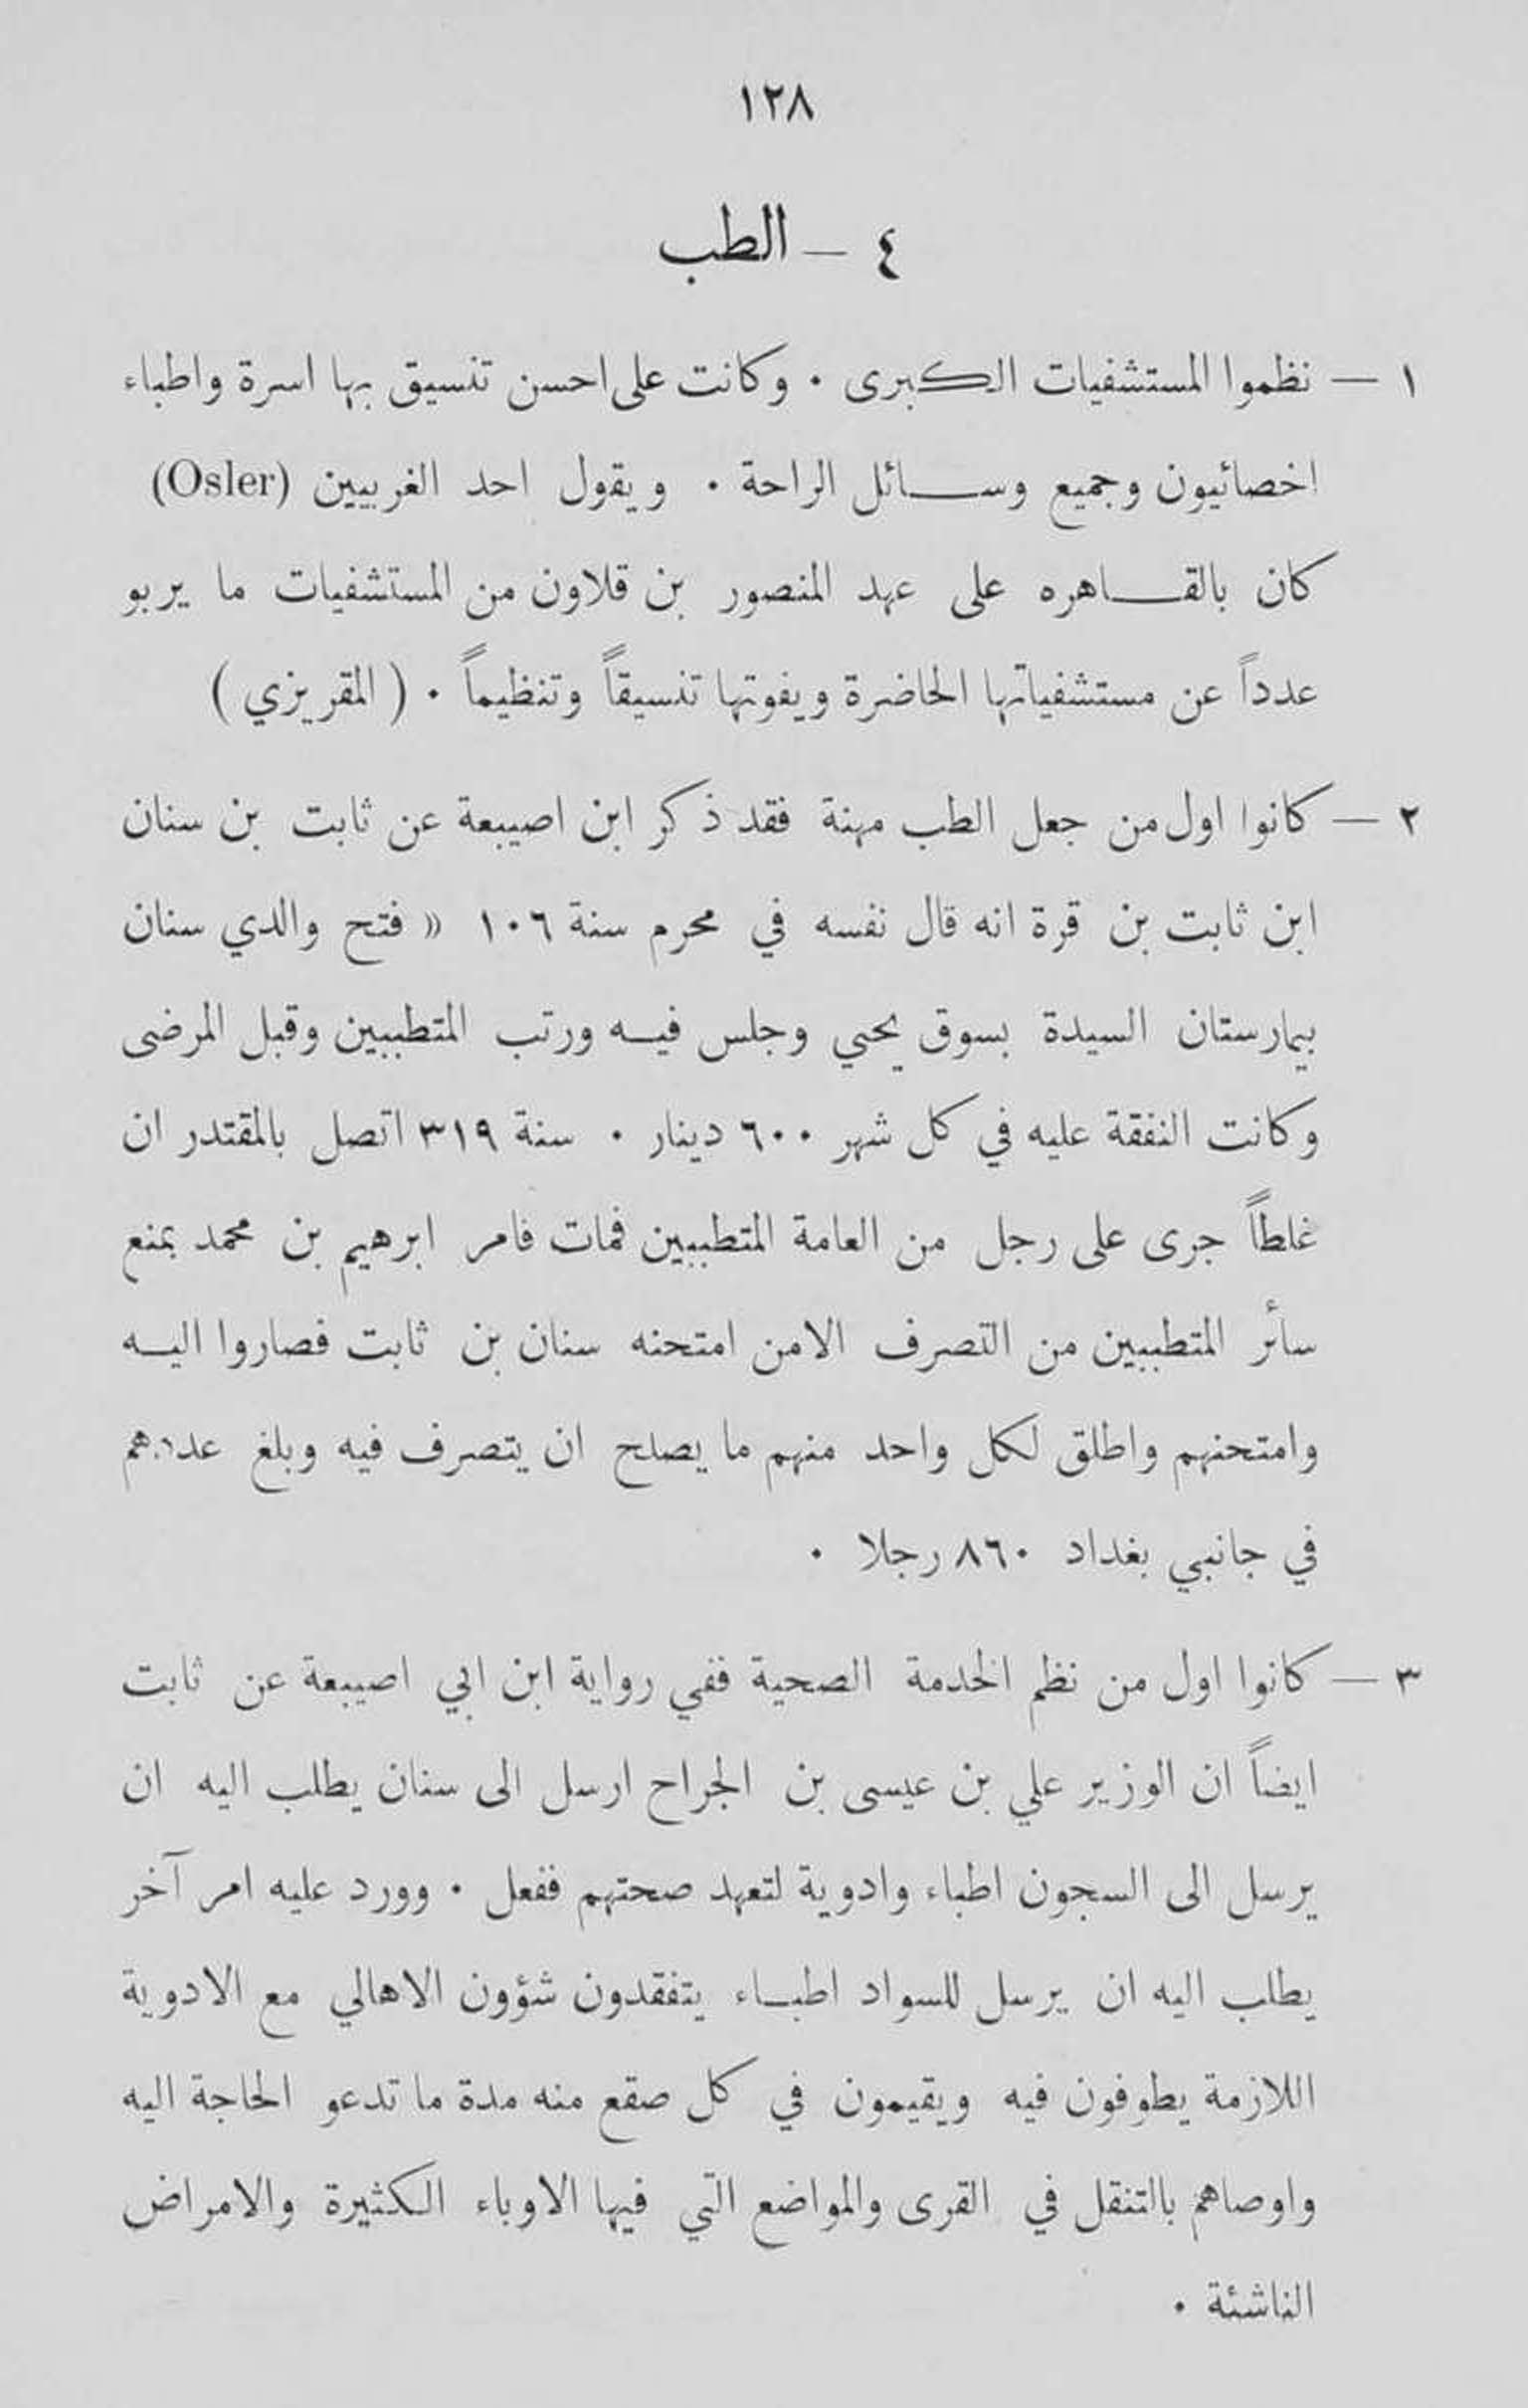 ١٢٨
٤ — الطب
١ — نظموا المستشفيات الكبرى . وكانت على احسن تنسيق بها اسرة واطباء
اخصائيون وجميع وسائل الراحة . ويقول احد الغربيين (Osler)
كان بالقاهره على عهد المنصور بن قلاون من المستشفيات ما يربو
عدداً عن مستشفياتها الحاضرة ويفوتها تنسيقاً وتنظيماً . ( المقريزي )
٢ — كانوا اول من جعل الطب مهنة فقد ذكر ابن اصيبعة عن ثابت بن سنان
ابن ثابت بن قرة انه قال نفسه في محرم سنة ١٠٦ « فتح والدي سنان
بيمارستان السيدة بسوق يحيي وجلس فيه ورتب المتطببين وقبل المرضى
وكانت النفقة عليه في كل شهر ٦٠٠ دينار . سنة ٣١٩ اتصل بالمقتدر ان
غلطاً جرى على رجل من العامة المتطببين فمات فامر ابرهيم بن محمد بمنع
سأئر المتطببين من التصرف الامن امتحنه سنان بن ثابت فصاروا اليه
وامتحنهم واطلق لكل واحد منهم ما يصلح ان يتصرف فيه وبلغ عددهم
في جانبي بغداد ٨٦٠ رجلا .
٣ — كانوا اول من نظم الخدمة الصحية ففي رواية ابن ابي اصيبعة عن ثابت
ايضاً ان الوزير علي بن عيسى بن الجراح ارسل الى سنان يطلب اليه ان
يرسل الى السجون اطباء وادوية لتعهد صحتهم ففعل . وورد عليه امر آخر
يطلب اليه ان يرسل للسواد اطباء يتفقدون شؤون الاهالي مع الادوية
اللازمة يطوفون فيه ويقيمون في كل صقع منه مدة ما تدعو الحاجة اليه
واوصاهم بالتنقل في القرى والمواضع التي فيها الاوباء الكثيرة والامراض
الناشئة .